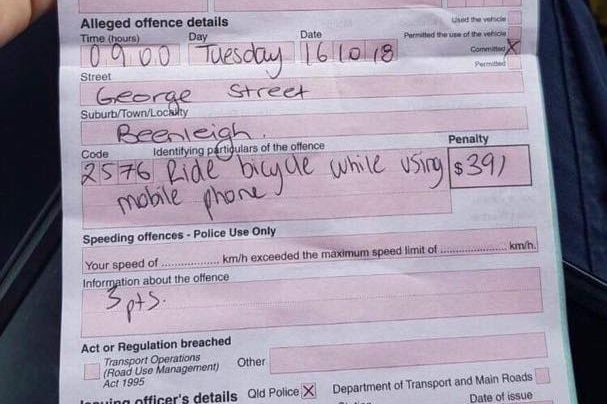 Alleged offence details
Used the vehicle
Time (hours) Day Date Permitted the use of the vehicle
0900 Tuesday 16 10 18 Committed X
Permitted
Street
George Street
Suburb/Town/Locality
Beenleigh.
Code Identifying particulars of the offence Penalty
2576 Ride bicycle while using $391
mobile phone
Speeding offences - Police Use Only
Your speed of .................. km/h exceeded the maximum speed limit of .................. km/h.
Information about the offence
3 pts.
Act or Regulation breached
Transport Operations
(Road Use Management) Other
Act 1995
Issuing officer's details Qld Police X Department of Transport and Main Roads
Date of issue